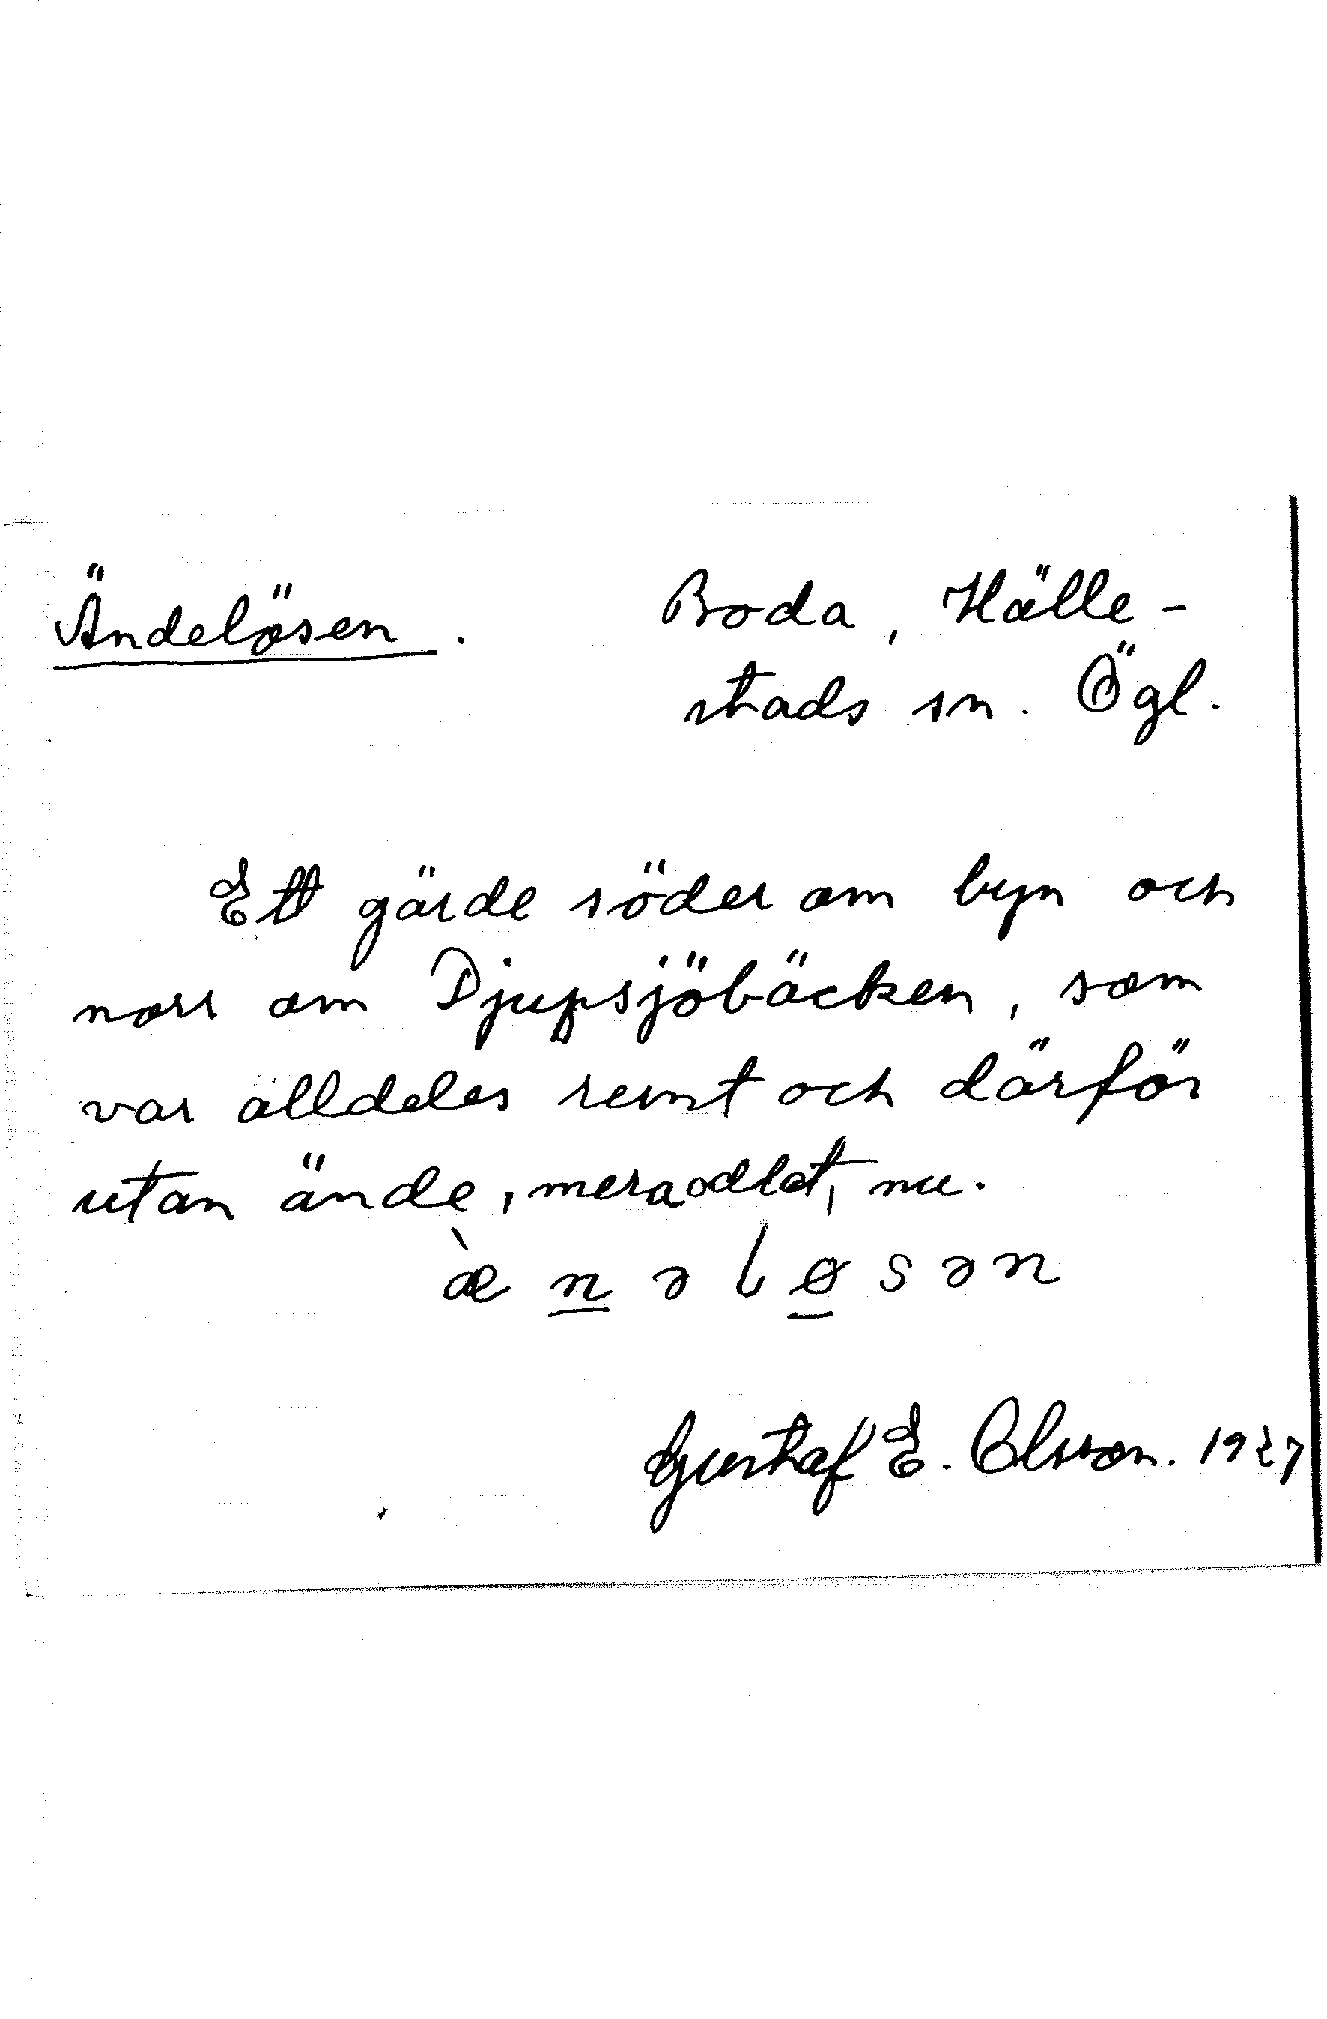 Ändelösen. Boda, Hälle-
stads sn. Ögl.
Ett gärde söder om byn och
norr om Djupsjöbäcken, som
var alldeles remt och därför
utan ände, mera odlat, nu.
æ̀ n̲ ə l ø̲ s ə n
Gustaf E. Olsson. 1927